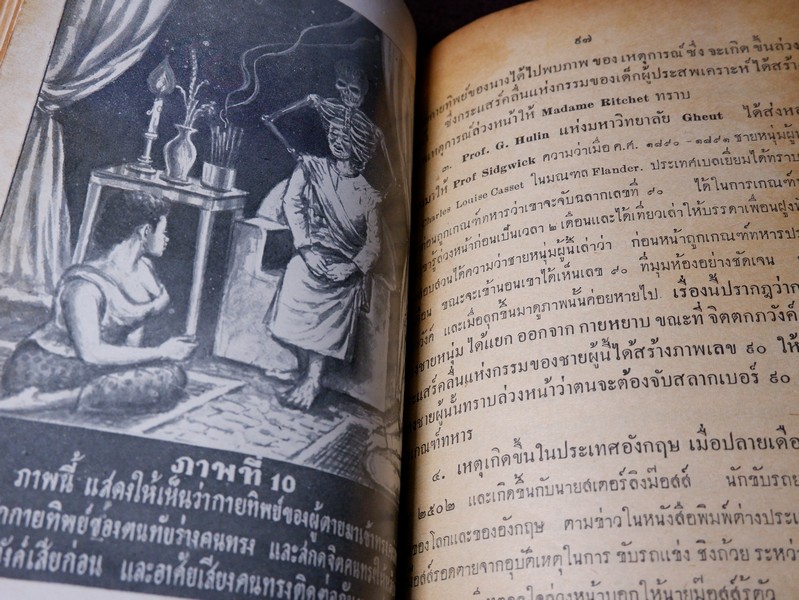 ภาพที่ 10
ภาพนี้ แสดงให้เห็นว่ากายทิพย์ของผู้ตายมาเข้าทรง
กายทิพย์ของตนทับร่างคนทรง และสกดจิตคนทรงให้
วังค์เสียก่อน และอาศัยเสียงคนทรงติดต่อกับ
๙๗
ายทิพย์ของนางได้ไปพบภาพ ของ เหตุการณ์ ซึ่ง จะเกิด ขึ้นล่วง
ซึ่งกระแสร์คลื่นแห่งกรรมของเด็กผู้ประสพเคราะห์ ได้สร้า
เหตุการณ์ล่วงหน้าให้ Madame Ritchet ทราบ
๓. Prof. G. Hulin แห่งมหาวิทยาลัย Gheut ได้ส่งหล
มาให้ Prof Sidgwick ความว่าเมื่อ ค.ศ. ๑๘๙๐ - ๑๘๙๑ ชายหนุ่มผู้ห
Charles Louise Casset ในมณฑล Flander. ประเทศเบลเยี่ยมได้ทราบ
ก่อนถูกเกณฑ์ทหารว่าเขาจะจับฉลากเลขที่ ๙๐ ได้ในการเกณฑ์ท
ขารู้ล่วงหน้าก่อนเป็นเวลา ๒ เดือนและได้เที่ยวเล่าให้บรรดาเพื่อนฝูงฟั
อบสวนได้ความว่าชายหนุ่มผู้นี้เล่าว่า ก่อนหน้าถูกเกณฑ์ทหารปร
ดือน ขณะจะเข้านอนเขาได้เห็นเลข ๙๐ ที่มุมห้องอย่างชัดเจน
วังค์ และเมื่อลุกขึ้นมาดูภาพนั้นค่อยหายไป. เรื่องนี้ปรากฎว่าก
งชายหนุ่ม ได้แยก ออกจาก กายหยาบ ขณะที่ จิตตกภวังค์
ะแสร์คลื่นแห่งกรรมของชายผู้นี้ได้สร้างภาพเลข ๙๐ ให้
งชายผู้นั้นทราบล่วงหน้าว่าตนจะต้องจับสลากเบอร์ ๙๐
เกณฑ์ทหาร
๔. เหตุเกิดขึ้นในประเทศอังกฤษ เมื่อปลายเดือ
๒๕๐๒ และเกิดขึ้นกับนายสเตอร์ลิงม๊อสส์ นักขับรถย
ของโลกและของอังกฤษ ตามข่าวในหนังสือพิมพ์ต่างประเ
ม๊อสส์รอดตายจากอุบัติเหตุในการ ขับรถแข่ง ซึ่งถ้วย ระหว่
ล่วงหน้าบอกให้นายม๊อสส์รู้ตัว